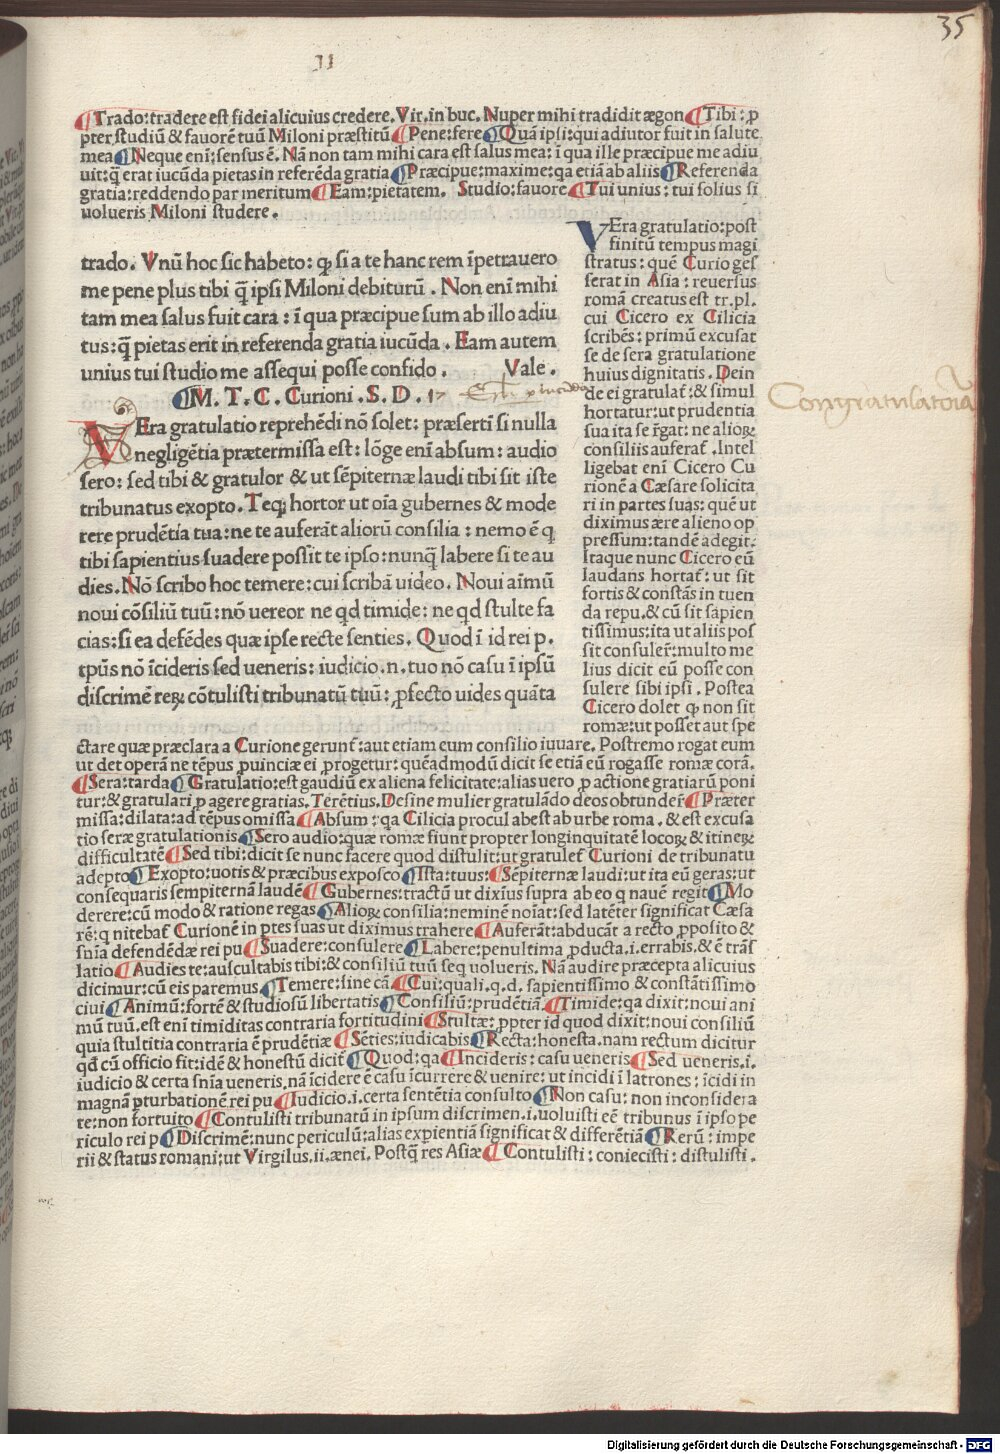 35
II
¶Trado: tradere est fidei alicuius credere. Vir. in buc. Nuper mihi tradidit ægon ¶Tibi: ꝓ
pter studiū & fauorē tuū Miloni præstitū ¶Pene: fere ¶Quā ipsi: qui adiutor fuit in salute
mea ¶Neque eni: sensus ē. Nā non tam mihi cara est salus mea: ī qua ille præcipue me adiu
uit: q̄ erat iucūda pietas in referēda gratia ¶Præcipue: maxime: qa etiā ab aliis ¶Referenda
gratia: reddendo par meritum ¶Eam: pietatem. Studio: fauore ¶Tui unius: tui solius si
uolueris Miloni studere.
trado. Vnū hoc sic habeto: ꝙ si a te hanc rem īpetrauero
me pene plus tibi q̄ ipsi Miloni debiturū. Non enī mihi
tam mea salus fuit cara: ī qua præcipue sum ab illo adiu
tus: q̄ pietas erit in referenda gratia iucūda. Eam autem
unius tui studio me assequi posse confido. Vale.
¶M. T. C. Curioni. S. D. 17
VEra gratulatio reprehēdi nō solet: præserti si nulla
negligētia prætermissa est: lōge enī absum: audio
sero: sed tibi & gratulor & ut sēpiternæ laudi tibi sit iste
tribunatus exopto. Teq; hortor ut oīa gubernes & mode
rere prudētia tua: ne te auferāt aliorū consilia: nemo ē q
tibi sapientius suadere possit te ipso: nunq̄ labere si te au
dies. Nō scribo hoc temere: cui scribā uideo. Noui aīmū
noui cōsiliū tuū: nō uereor ne qd timide: ne qd stulte fa
cias: si ea defēdes quæ ipse recte senties. Quod ī id rei p.
tpūs nō īcideris sed ueneris: iudicio .n. tuo nō casu ī ipsū
discrimē reꝝ cōtulisti tribunatū tuū: ꝓfecto uides quāta
VEra gratulatio: post
finitū tempus magi
stratus: quē Curio ges
serat in Asia: reuersus
romā creatus est tr. pl.
cui Cicero ex Cilicia
scribēs: primū excusat
se de sera gratulatione
huius dignitatis. Dein
de ei gratulat̄: & simul
hortatur: ut prudentia
sua ita se r̄gat: ne alioꝝ
consiliis auferat̄. Intel
ligebat enī Cicero Cu
rionē a Cæsare solicita
ri in partes suas: quē ut
diximus ære alieno op
pressum: tandē adegit.
Itaque nunc Cicero eū
laudans hortat̄: ut sit
fortis & constās in tuen
da repu. & cū sit sapien
tissimus: ita ut aliis pos
sit consuler̄: multo me
lius dicit eū posse con
sulere sibi ipsi. Postea
Cicero dolet ꝙ non sit
romæ: ut posset aut spe
Congratulatoria
ctare quæ præclara a Curione gerunt̄: aut etiam eum consilio iuuare. Postremo rogat eum
ut det operā ne tēpus ꝓuinciæ ei ꝓrogetur: quēadmodū dicit se etiā eū rogasse romæ corā.
¶Sera: tarda ¶Gratulatio: est gaudiū ex aliena felicitate: alias uero ꝓ actione gratiarū poni
tur: & gratulari ꝓ agere gratias. Terētius. Desine mulier gratulādo deos obtunder̄ ¶Præter
missa: dilata: ad tēpus omissa ¶Absum: qa Cilicia procul abest ab urbe roma. & est excusa
tio seræ gratulationis ¶Sero audio: quæ romæ fiunt propter longinquitatē locoꝝ & itineꝝ
difficultatē ¶Sed tibi: dicit se nunc facere quod distulit: ut gratulet̄ Curioni de tribunatu
adepto ¶Exopto: uotis & præcibus exposco ¶Ista: tuus: ¶Sēpiternæ laudi: ut ita eū geras: ut
consequaris sempiternā laudē ¶Gubernes: tractū ut dixius supra ab eo q nauē regit ¶Mo
derere: cū modo & ratione regas ¶Alioꝝ consilia: neminē noīat: sed latēter significat Cæsa
rē: q nitebat̄ Curionē in ꝑtes suas ut diximus trahere ¶Auferāt: abducāt a recto ꝓposito &
snīa defendēdæ rei pu ¶Suadere: consulere ¶Labere: penultima ꝓducta .i. errabis. & ē trās
latio ¶Audies te: auscultabis tibi: & consiliū tuū seq uolueris. Nā audire præcepta alicuius
dicimur: cū eis paremus ¶Temere: sine cā ¶Cui: quali. q. d. sapientissimo & constātissimo
ciui ¶Animū: fortē & studiosū libertatis ¶Consiliū: prudētiā ¶Timide: qa dixit: noui ani
mū tuū. est enī timiditas contraria fortitudini ¶Stultæ: ꝓpter id quod dixit: noui consiliū
quia stultitia contraria ē prudētiæ ¶Sēties: iudicabis ¶Recta: honesta. nam rectum dicitur
qd̄ cū officio fit: idē & honestū dicit̄ ¶Quod: qa ¶Incideris: casu ueneris ¶Sed ueneris .i.
iudicio & certa snīa ueneris. nā īcidere ē casu īcurrere & uenire: ut incidi ī latrones: īcidi in
magnā ꝑturbationē rei pu ¶Iudicio .i. certa sentētia consulto ¶Non casu: non inconsidera
te: non fortuito ¶Contulisti tribunatū in ipsum discrimen .i. uoluisti eē tribunus ī ipso pe
riculo rei p ¶Discrimē: nunc periculū: alias expientiā significat & differētiā ¶Rerū: impe
rii & status romani: ut Virgilus. ii. ænei. Postq̄ res Asiæ ¶Contulisti: coniecisti: distulisti.
Digitalisierung gefördert durch die Deutsche Forschungsgemeinschaft - DFG